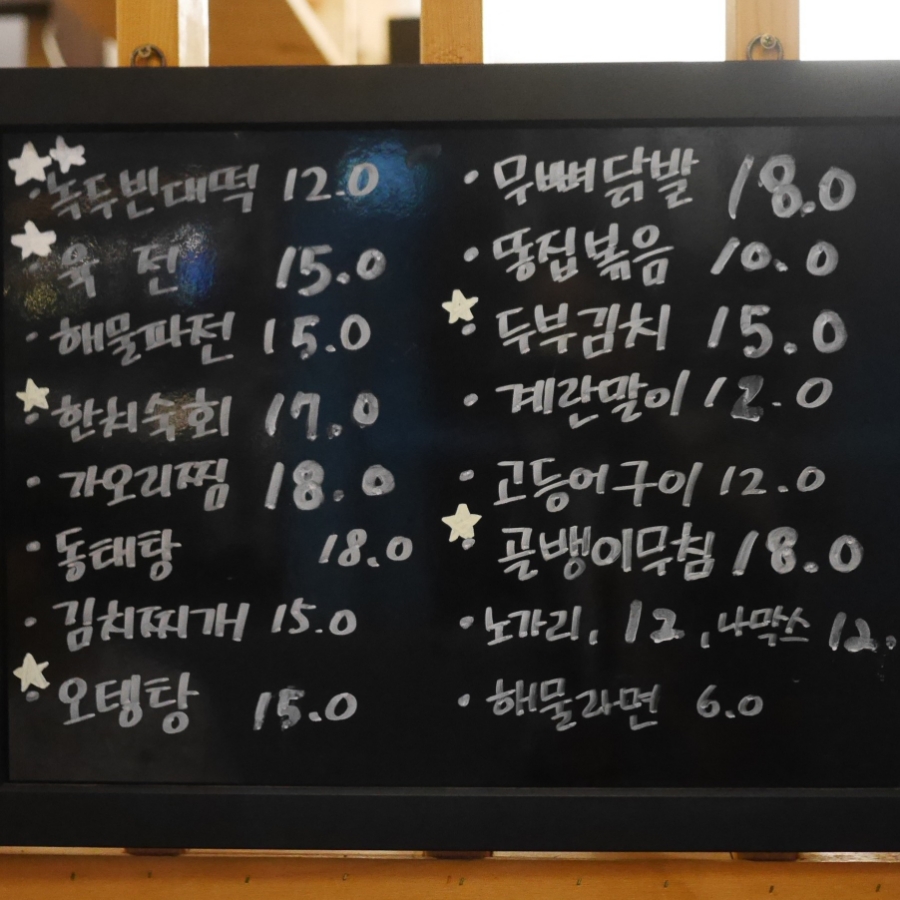 녹두빈대떡 12.0
육 전 15.0
해물파전 15.0
한치숙회 17.0
가오리찜 18.0
동태탕 18.0
김치찌개 15.0
오뎅탕 15.0
무뼈닭발 18.0
똥집볶음 10.0
두부김치 15.0
계란말이 12.0
고등어구이 12.0
골뱅이무침 18.0
노가리. 12 , 나막스 12.
해물라면 6.0